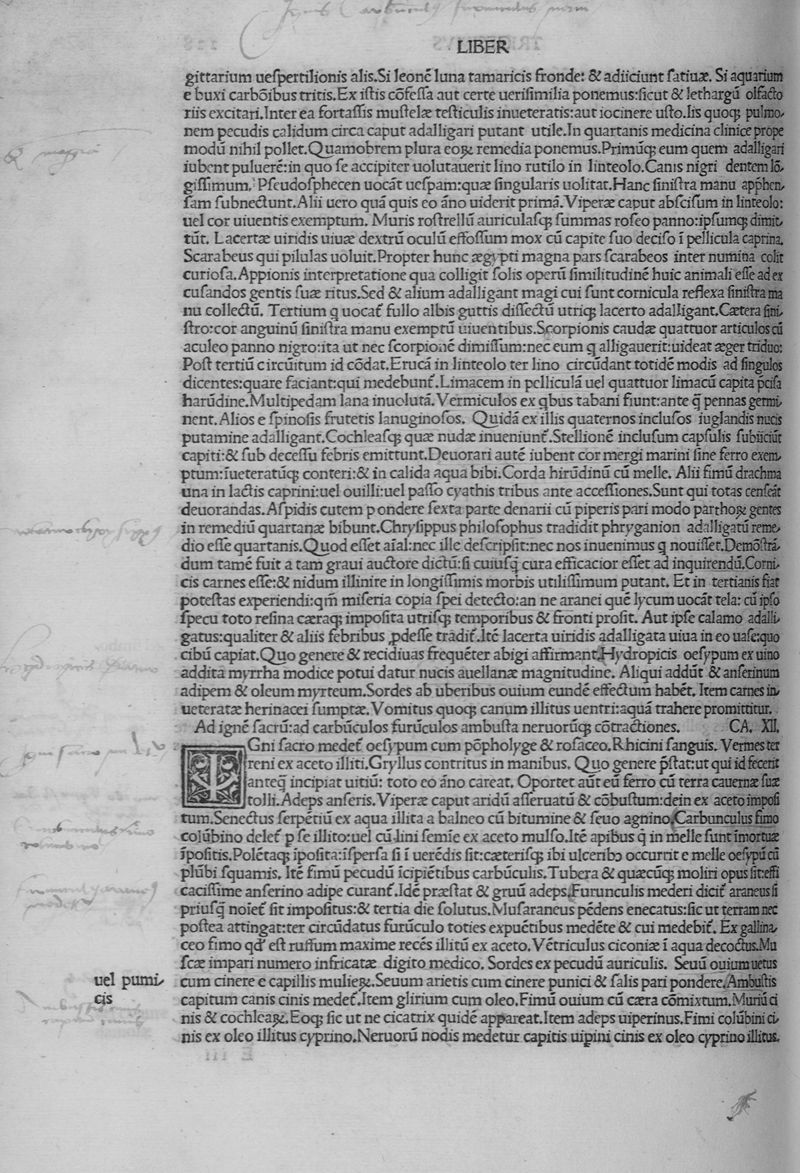 LIBER
gittarium uespertilionis alis.Si leonē luna tamaricis fronde: & adiiciunt satiuæ. Si aquarium
e buxi carbōibus tritis.Ex istis cōfessa aut certe uerisimilia ponemus:sicut & lethargū olfacto
riis excitari.Inter ea fortassis mustelæ testiculis inueteratis:aut iocinere usto.Iis quoq; pulmo-
nem pecudis calidum circa caput adalligari putant utile.In quartanis medicina clinice prope
modū nihil pollet.Quamobrem plura eoꝝ remedia ponemus.Primūq; eum quem adalligari
iubent puluerē:in quo se accipiter uolutauerit lino rutilo in linteolo.Canis nigri dentem lō-
gissimum. Pseudosphecen uocāt uespam:quæ singularis uolitat.Hanc sinistra manu app̄hen-
sam subnectunt.Alii uero quā quis eo āno uiderit primā.Viperæ caput abscisum in linteolo:
uel cor uiuentis exemptum. Muris rostrellū auriculasq; summas roseo panno:ipsumq; dimit-
tūt. Lacertæ uiridis uiuæ dextrū oculū effossum mox cū capite suo deciso ī pellicula caprina.
Scarabeus qui pilulas uoluit.Propter hunc ægypti magna pars scarabeos inter numina colit
curiosa.Appionis interpretatione qua colligit solis operū similitudinē huic animali esse ad ex
cusandos gentis suæ ritus.Sed & alium adalligant magi cui sunt cornicula reflexa sinistra ma
nu collectū. Tertium q uocať fullo albis guttis dissectū utriq; lacerto adalligant.Cætera sini-
stro:cor anguinū sinistra manu exemptū uiuentibus.Scorpionis caudæ quattuor articulos cū
aculeo panno nigro:ita ut nec scorpionē dimissum:nec eum q alligauerit:uideat æger triduo:
Post tertiū circūitum id cōdat.Erucā in linteolo ter lino circūdant totidē modis ad singulos
dicentes:quare faciant:qui medebunť.Limacem in pelliculā uel quattuor limacū capita p̄cisa
harūdine.Multipedam lana inuolutā.Vermiculos ex qbus tabani fiunt:ante q̄ pennas germi-
nent.Alios e spinosis frutetis lanuginosos. Quidā ex illis quaternos inclusos iuglandis nucis
putamine adalligant.Cochleasq; quæ nudæ inueniunť.Stellionē inclusum capsulis subiiciūt
capiti:& sub decessu febris emittunt.Deuorari autē iubent cor mergi marini sine ferro exem-
ptum:īueteratūq; conteri:& in calida aqua bibi.Corda hirūdinū cū melle. Alii fimū drachma
una in lactis caprini:uel ouilli:uel passo cyathis tribus ante accessiones.Sunt qui totas censeāt
deuorandas.Aspidis cutem pondere sexta parte denarii cū piperis pari modo parthoꝝ gentes
in remediū quartanæ bibunt.Chrysippus philosophus tradidit phryganion adalligatū reme-
dio esse quartanis.Quod esset aīal:nec ille descripsit:nec nos inuenimus q nouisset.Demōstrā-
dum tamē fuit a tam graui auctore dictū:si cuiusq̄ cura efficacior esset ad inquirendū.Corni-
cis carnes esse:& nidum illinire in longissimis morbis utilissimum putant. Et in tertianis fiat
potestas experiendi:qm̄ miseria copia spei detecto:an ne aranei quē lycum uocāt tela: cū ipso
specu toto resina cæraq; imposita utrisq; temporibus & fronti prosit. Aut ipse calamo adalli-
gatus:qualiter & aliis febribus ꝓdesse tradiť.Itē lacerta uiridis adalligata uiua in eo uase:quo
cibū capiat.Quo genere & recidiuas frequēter abigi affirmant.Hydropicis oesypum ex uino
addita myrrha modice potui datur nucis auellanæ magnitudine. Aliqui addūt & anserinum
adipem & oleum myrteum.Sordes ab uberibus ouium eundē effectum habēt. Item carnes in-
ueteratæ herinacei sumptæ.Vomitus quoq; canum illitus uentri:aquā trahere promittitur.
Ad ignē sacrū:ad carbūculos furūculos ambusta neruorūq; cōtractiones. CA. XII.
IGni sacro medeť oesypum cum pōpholyge & rosaceo.Rhicini sanguis. Vermes ter
reni ex aceto illiti.Gryllus contritus in manibus. Quo genere p̄stat:ut qui id fecerit
anteq̄ incipiat uitiū: toto eo āno careat. Oportet aūt eū ferro cū terra cauernæ suæ
tolli.Adeps anseris.Viperæ caput aridū asseruatū & cōbustum:dein ex aceto imposi
tum.Senectus serpētiū ex aqua illita a balneo cū bitumine & seuo agnino.Carbunculus fimo
colūbino deleť p se illito:uel cū lini semīe ex aceto mulso.Itē apibus q̄ in melle sunt īmortuæ
īpositis.Polētaq; īposita:īspersa si ī uerēdis sit:cæterisq; ibi ulceribo occurrit e melle oesypū cū
plūbi squamis. Itē fimū pecudū īcipiētibus carbūculis.Tubera & quæcūq; moliri opus sit:effi
cacissime anserino adipe curanť.Idē præstat & gruū adeps.Furunculis mederi diciť araneus si
priusq̄ noīeť sit impositus:& tertia die solutus.Musaraneus pēdens enecatus:sic ut terram nec
postea attingat:ter circūdatus furūculo toties expuētibus medēte & cui medebiť. Ex gallina-
ceo fimo qď est russum maxime recēs illitū ex aceto.Vētriculus ciconiæ ī aqua decoctus.Mu
scæ impari numero infricatæ digito medico. Sordes ex pecudū auriculis. Seuū ouium uetus
cum cinere e capillis mulieꝝ.Seuum arietis cum cinere punici & salis pari pondere.Ambustis
uel pumi-
cis
capitum canis cinis medeť.Item glirium cum oleo.Fimū ouium cū cæra cōmixtum.Muriū ci
nis & cochleaꝝ.Eoq; sic ut ne cicatrix quidē appareat.Item adeps uiperinus.Fimi colūbini ci-
nis ex oleo illitus cyprino.Neruorū nodis medetur capitis uipini cinis ex oleo cyprino illitus.